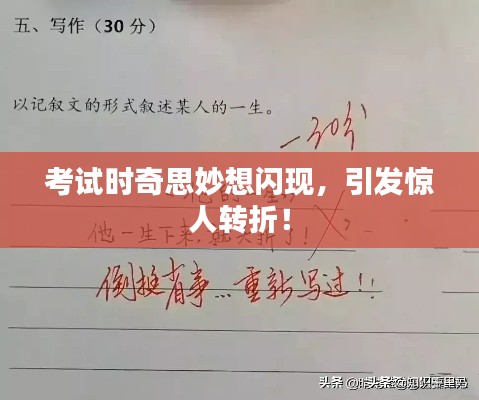 五、写作（30分）
以记叙文的形式叙述某人的一生。
一30分
考试时奇思妙想闪现，引发惊
人转折！
他一生下来，就夭折了！
倒挺省事...重新写过！！
头条 @